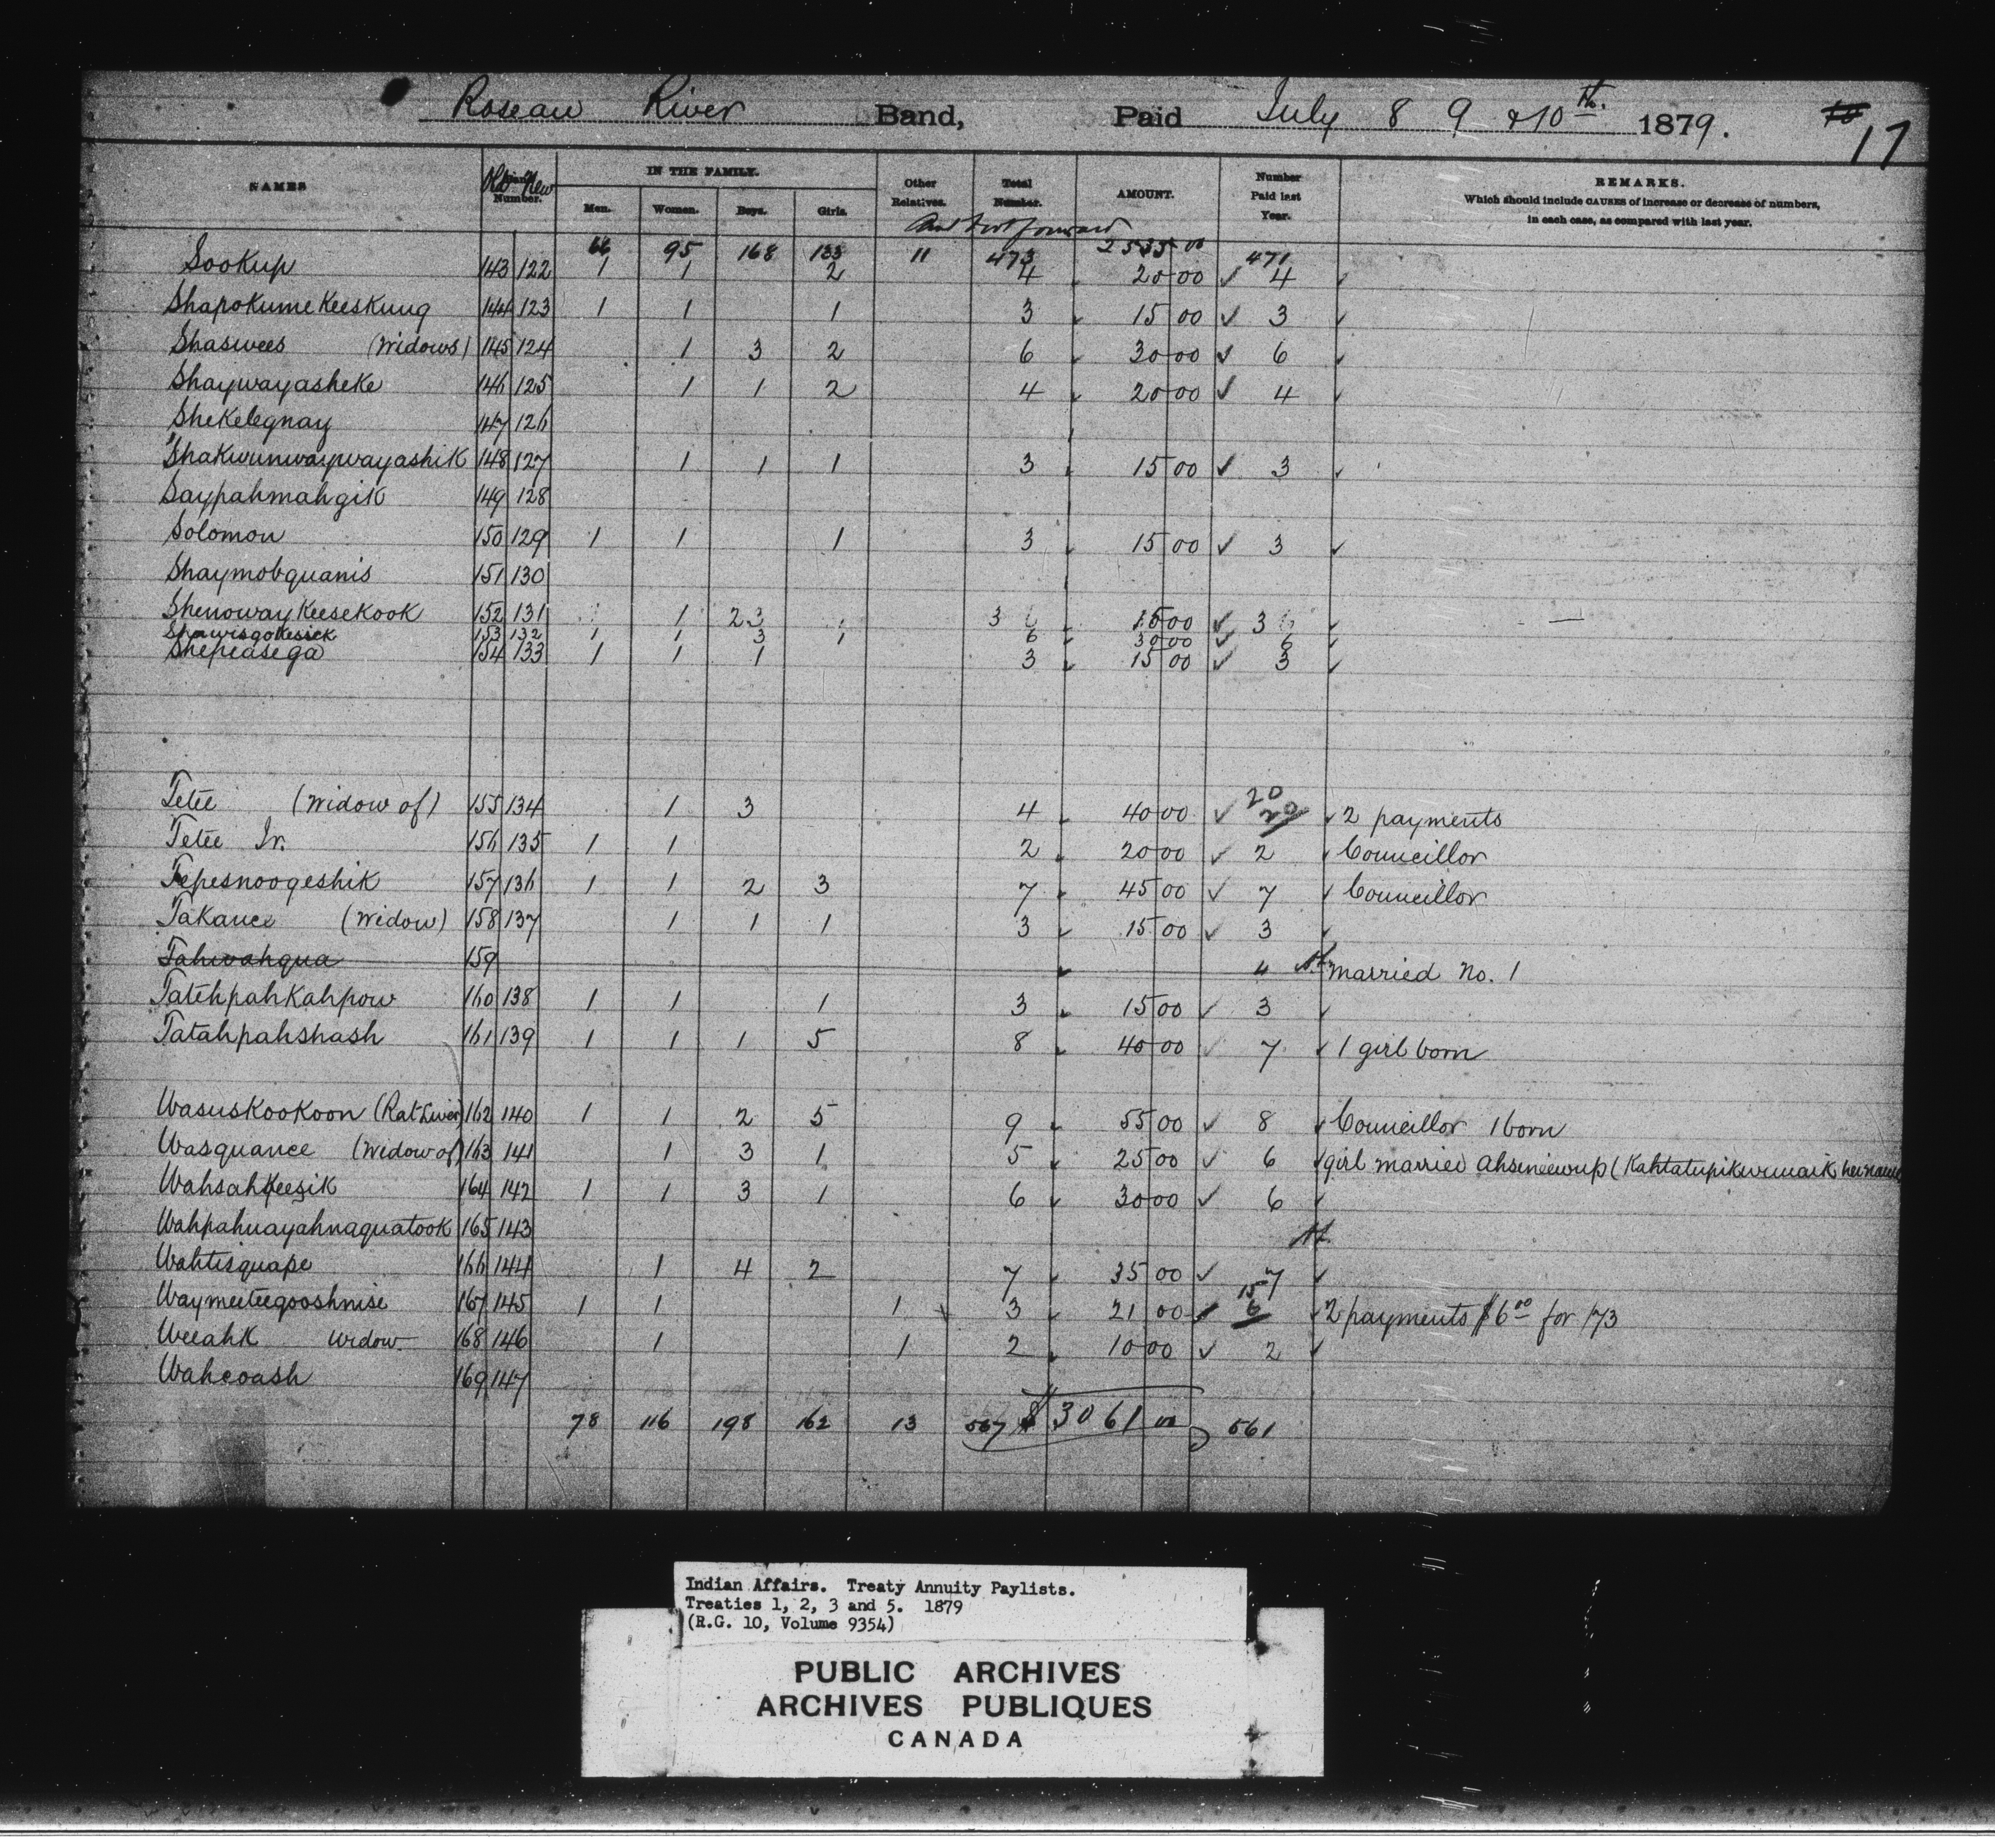 Roseau River Band, Paid July 8 9 & 10th. 1879. 17
NAMES Old New Number. IN THE FAMILY. Men. Women. Boys. Girls. Other Relatives. Total Number. AMOUNT. Number Paid last Year. REMARKS. Which should include CAUSES of increase or decrease of numbers, in each case, as compared with last year.
66 95 168 133 11 473 2535 00 471
Sookup 143 122 1 1 2 4 20 00 ✓ 4
ShapokumeKeeskung 144 123 1 1 1 3 15 00 ✓ 3
Shaswees (Widows) 145 124 1 3 2 6 30 00 ✓ 6
Shaywayasheke 146 125 1 1 2 4 20 00 ✓ 4
Shekelegnay 147 126
Shakwunwaywayashik 148 127 1 1 1 3 15 00 ✓ 3
Saypahmahgik 149 128
Solomon 150 129 1 1 1 3 15 00 ✓ 3
Shaymobquanis 151 130
ShenowayKeeseKook 152 131 1 2 3 15 00 ✓ 3
Shawisgokesick 153 132 1 1 3 1 6 30 00 ✓ 6
Shepeasega 154 133 1 1 1 3 15 00 ✓ 3
Tetee (Widow of) 155 134 1 3 4 40 00 ✓ 20 2 payments
Tetee Jr. 156 135 1 1 2 20 00 ✓ 2 Councillor
Tepesnoogeshik 157 136 1 1 2 3 7 45 00 ✓ 7 Councillor
Takance (Widow) 158 137 1 1 1 3 15 00 ✓ 3
Tahwahqua 159 4 married No. 1
TatehpahKahpow 160 138 1 1 1 3 15 00 ✓ 3
Tatahpahshash 161 139 1 1 1 5 8 40 00 ✓ 7 1 girl born
WasusKooKoon (Rat Liver) 162 140 1 1 2 5 9 55 00 ✓ 8 Councillor 1 born
Wasquance (Widow of) 163 141 1 3 1 5 25 00 ✓ 6 girl married
WahsahKeezik 164 142 1 1 3 1 6 30 00 ✓ 6
Wahpahuayahnaquatook 165 143
Wahtisquape 166 144 1 4 2 7 35 00 ✓ 7
Waymeeteegooshnise 167 145 1 1 1 3 21 00 15 6 2 payments $6 00 for 73
Weeahk Widow 168 146 1 1 2 10 00 ✓ 2
Wahcoash 169 147
78 116 198 162 13 567 $ 3061 00 561
Indian Affairs. Treaty Annuity Paylists.
Treaties 1, 2, 3 and 5. 1879
(R.G. 10, Volume 9354)
PUBLIC ARCHIVES
ARCHIVES PUBLIQUES
CANADA